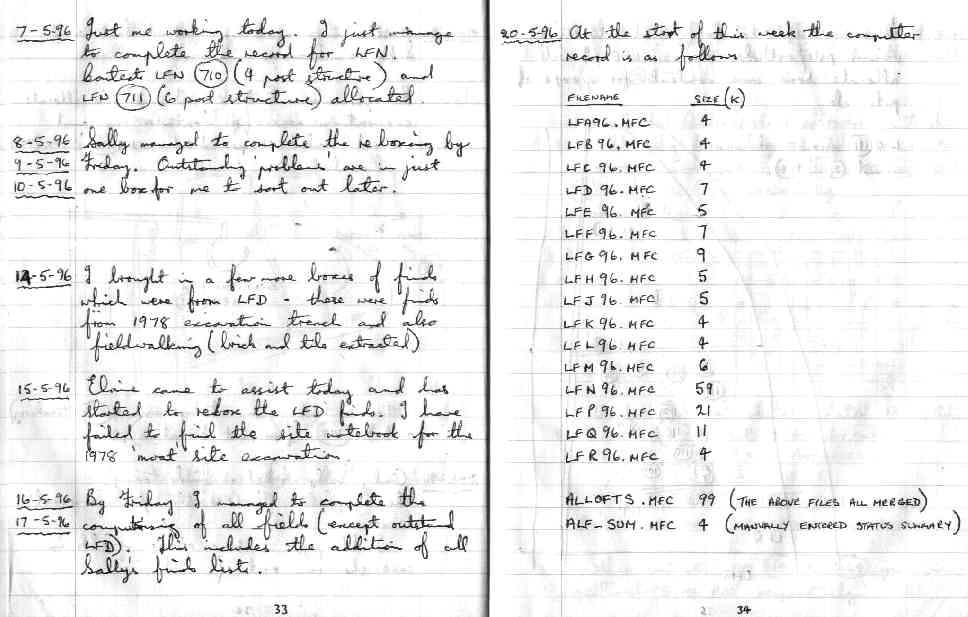 7-5-96 Just me working today. I just manage
to complete the record for LFN.
Context LFN 710 (4 post structure) and
LFN 711 (6 post structure) allocated.
8-5-96 Sally managed to complete the reboxing by
9-5-96 Friday. Outstanding 'problems' are in just
10-5-96 one box for me to sort out later.
14-5-96 I brought in a few more boxes of finds
which were from LFD - these were finds
from 1978 excavation trench and also
fieldwalking (brick and tile extracted)
15-5-96 Elaine came to assist today and has
started to rebox the LFD finds. I have
failed to find the site notebook for the
1978 'moat' site excavation.
16-5-96 By Friday I managed to complete the
17-5-96 computerising of all fields (except outstand
LFD). This includes the addition of all
Sally's finds lists.
33
20-5-96 At the start of this week the computer
record is as follows
FILENAME SIZE (K)
LFA96.MFC 4
LFB96.MFC 4
LFC96.MFC 4
LFD96.MFC 7
LFE96.MFC 5
LFF96.MFC 7
LFG96.MFC 9
LFH96.MFC 5
LFJ96.MFC 5
LFK96.MFC 4
LFL96.MFC 4
LFM96.MFC 6
LFN96.MFC 59
LFP96.MFC 21
LFQ96.MFC 11
LFR96.MFC 4
ALLOFTS.MFC 99 (THE ABOVE FILES ALL MERGED)
ALF-SUM.MFC 4 (MANUALLY ENTERED STATUS SUMMARY)
34